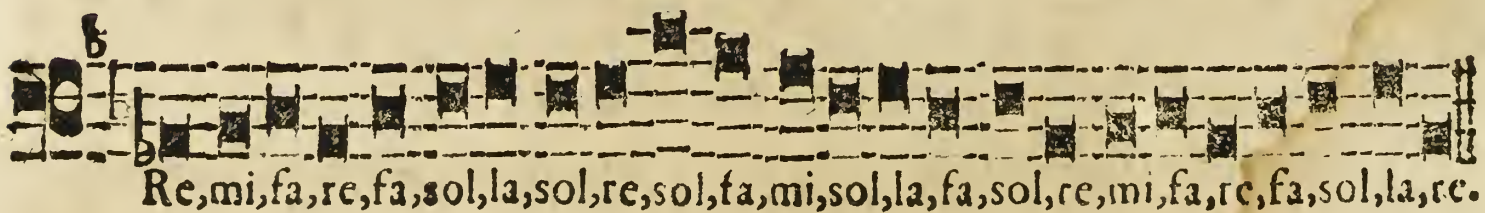 Re,mi,fa,re,fa,sol,la,sol,re,sol,fa,mi,sol,la,fa,sol,re,mi,fa,re,fa,sol,la,re.